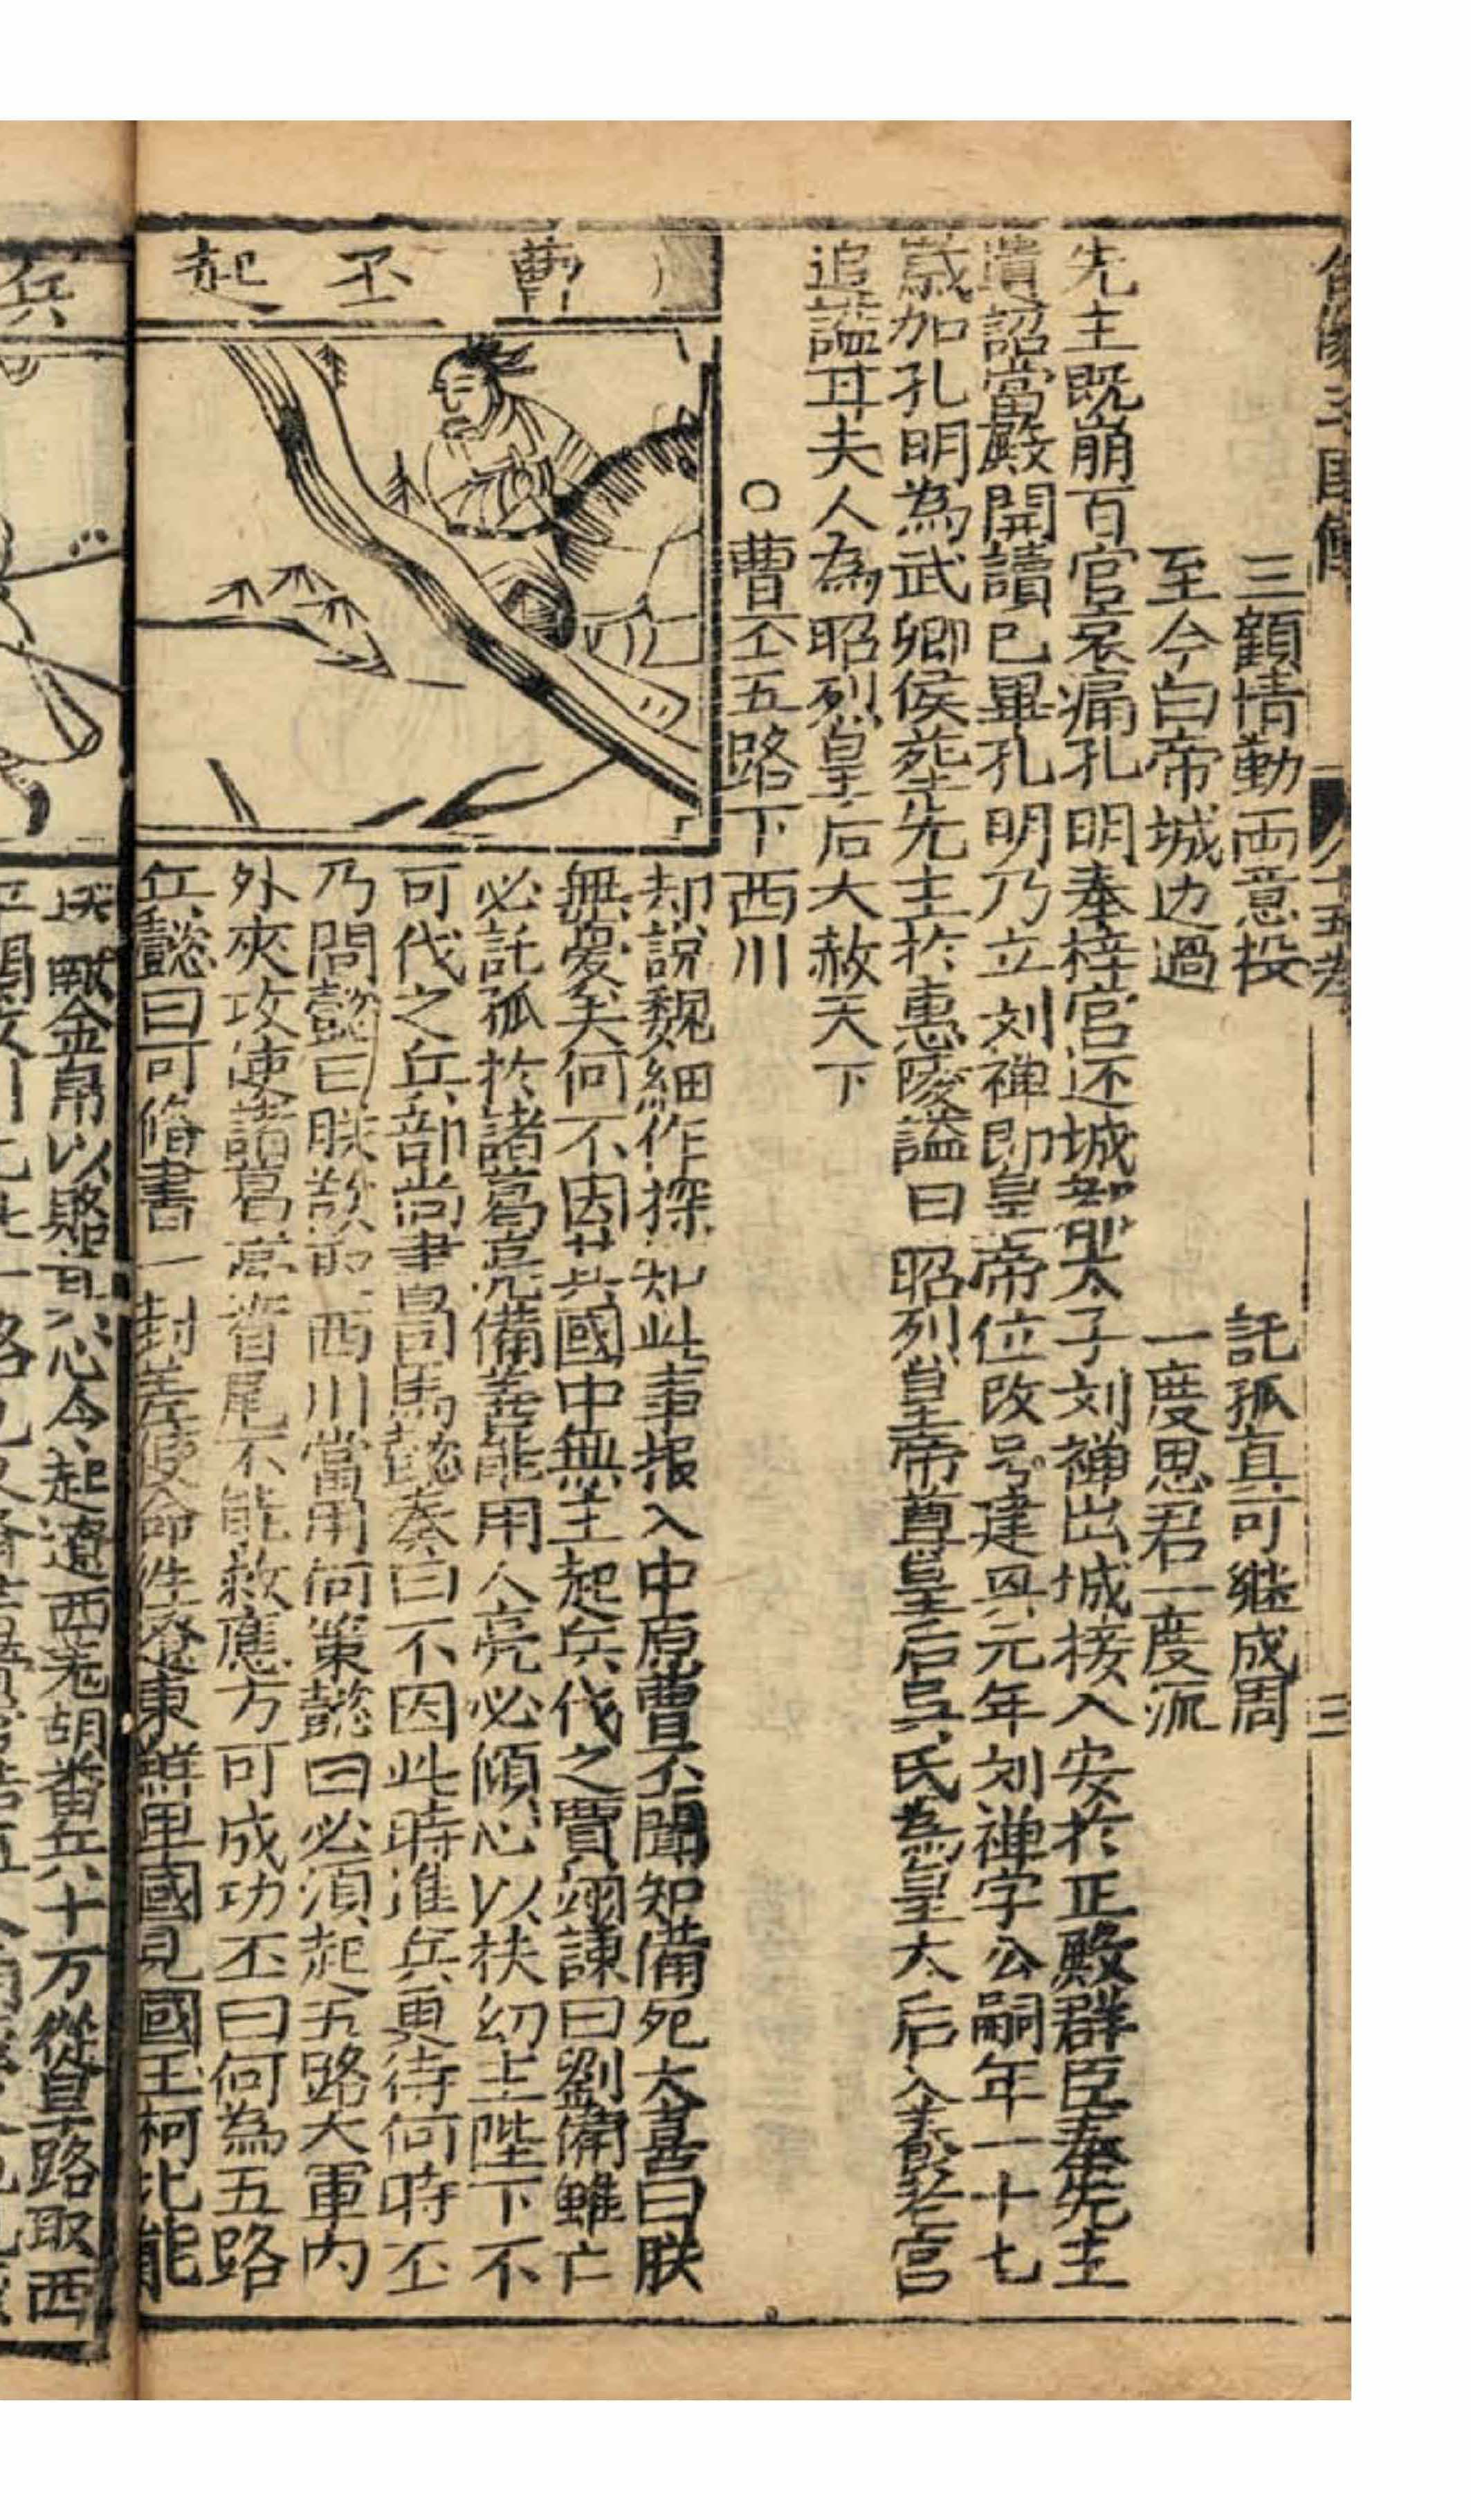 三國傳
十五卷
三
三顧情勤両意投 託孤真可継成周
至今白帝城边過 一度思君一度流
先主既崩百官哀痛孔明奉梓宮还城太子刘禅出城接入安於正殿群臣奉先主
遺詔當殿開讀已畢孔明乃立刘禅即皇帝位改号建兴元年刘禅字公嗣年一十七
歳加孔明為武卿侯塟先主於惠陵諡曰昭烈皇帝尊皇后吳氏為皇太后入養老宮
追諡甘夫人為昭烈皇后大赦天下
○曹丕五路下西川
曹丕起
却說魏細作探知此事报入中原曹丕聞知備死大喜曰朕
無憂矣何不因其國中無主起兵伐之賈詡諫曰劉備雖亡
必託孤於諸葛亮備善能用人亮必傾心以扶幼主陛下不
可伐之兵部尚書司馬懿奏曰不因此時進兵更待何時丕
乃問懿曰朕欲西川當用何策懿曰必須起五路大軍内
外夾攻使諸葛亮首尾不能救應方可成功丕曰何為五路
兵懿曰可脩書一封差使命往遼東鮮卑國見國王柯比能
兵
金帛以賂其心令起遼西羌胡番兵十万從旱路取西